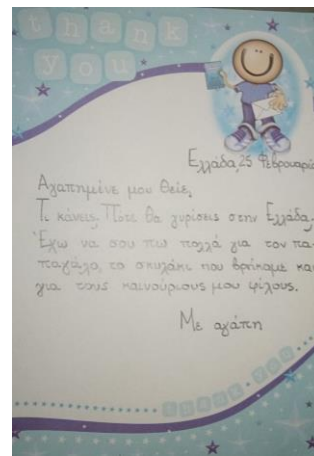 thank
you
Ελλάδα, 25 Φεβρουαρίο
Αγαπημένε μου Θείε,
Τι κάνεις; Πότε θα γυρίσεις στην Ελλάδα;
Έχω να σου πω πολλά για τον πα-
παγάλο, το σκυλάκι που βρήκαμε και
για τους καινούριους μου φίλους.
Με αγάπη
thank you